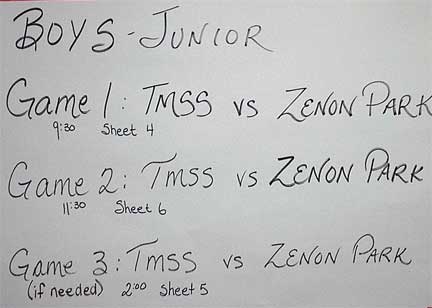 BOYS - JUNIOR
Game 1: TMSS vs ZENON PARK
9:30 Sheet 4
Game 2: TMSS vs ZENON PARK
11:30 Sheet 6
Game 3: TMSS vs ZENON PARK
(if needed) 2:00 Sheet 5